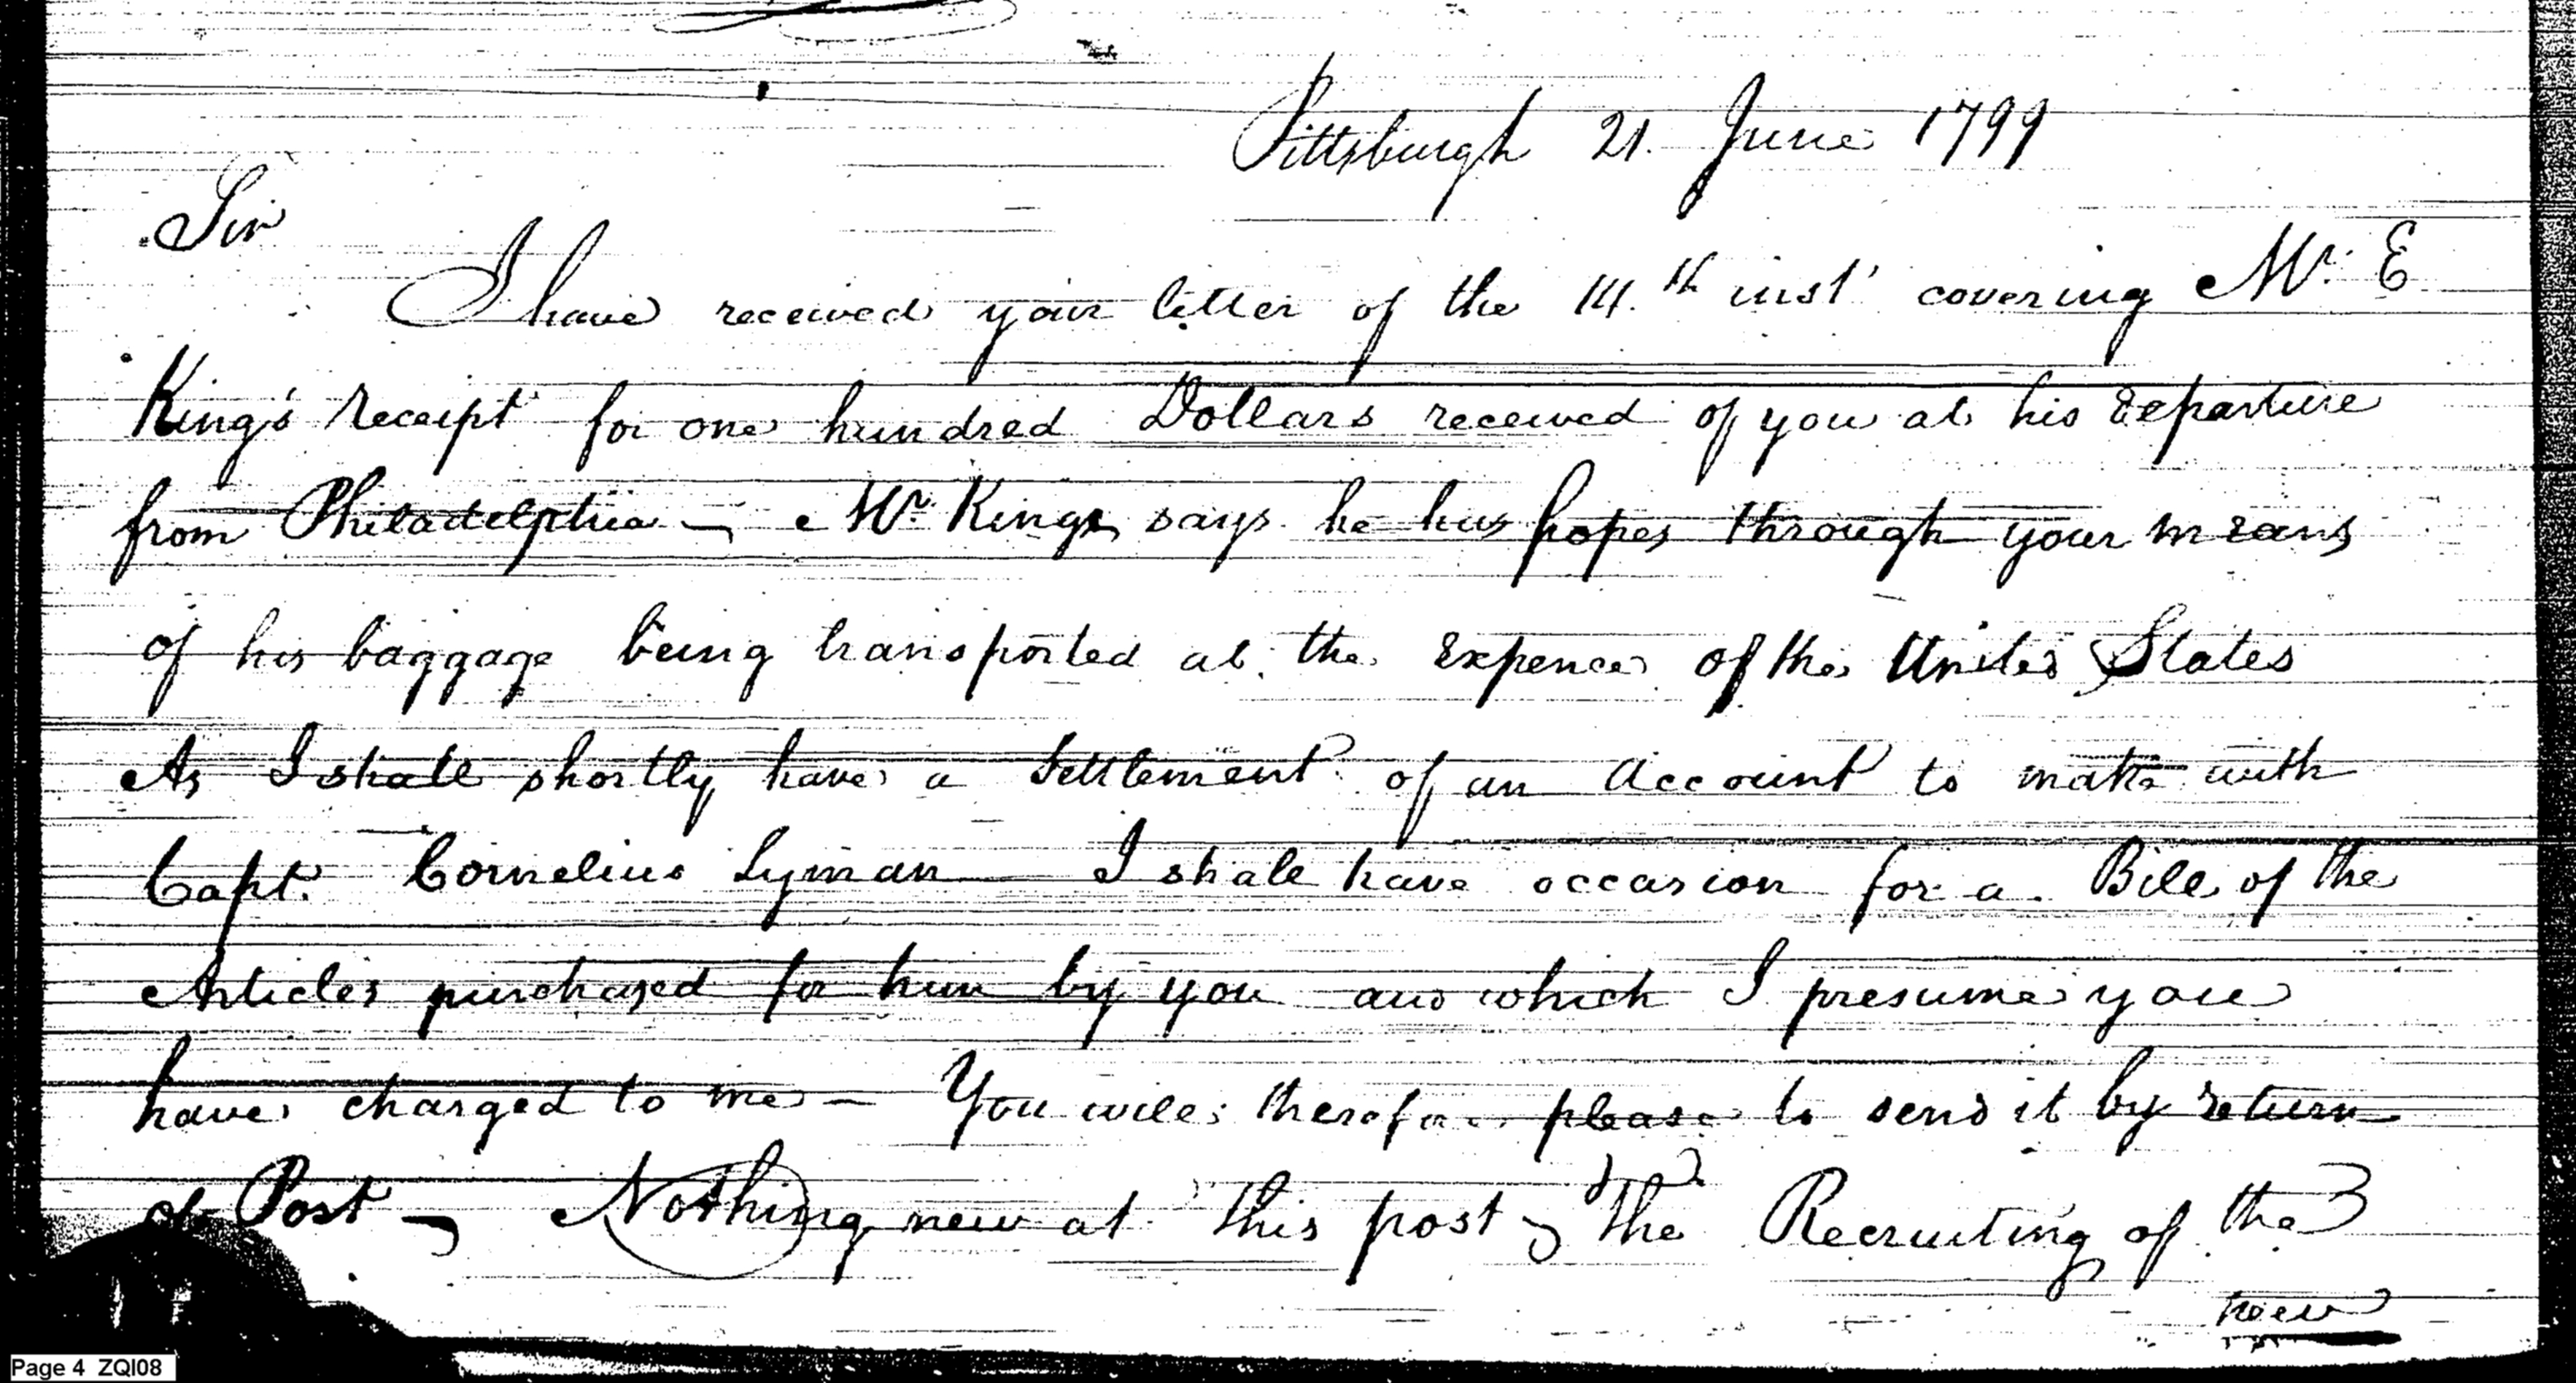 Pittsburgh 21. June 1799
Sir
I have received your letter of the 14.th inst' covering Mr. E
King's receipt for one hundred Dollars received of you at his departure
from Philadelphia — Mr. King says he has hopes through your means
of his baggage being transported at the expence of the United States
As I shall shortly have a Settlement of an Account to make with
Capt. Cornelius Lyman I shall have occasion for a Bill of the
Articles purchased for him by you and which I presume you
have charged to me — You will therefore please to send it by return
of Post — Nothing new at this post — The Recruiting of the
new
Page 4 ZQI08